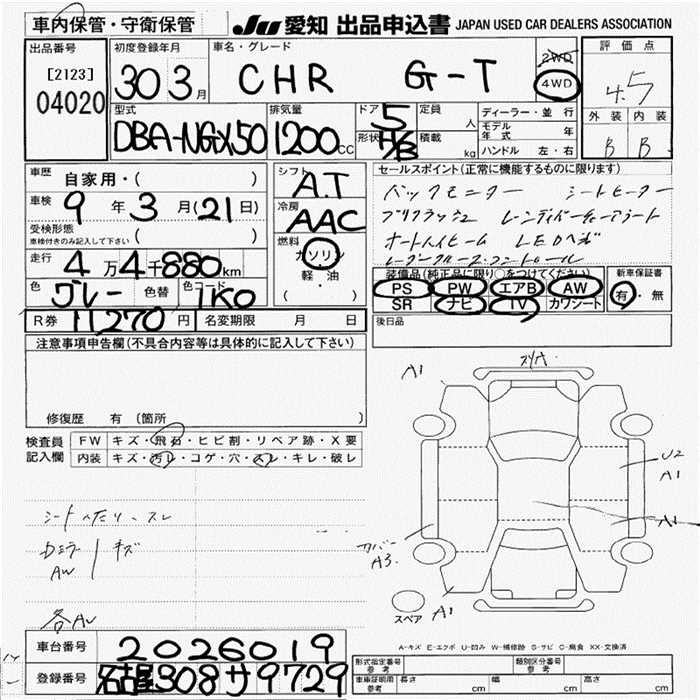 車内保管・守衛保管
JU 愛知 出品申込書 JAPAN USED CAR DEALERS ASSOCIATION
出品番号
[2123]
04020
初度登録年月
30 3月
車名・グレード
CHR G-T
2WD
4WD
評価点
4.5
外装 内装
B B
型式
DBA-NGX50
排気量
1200cc
ドア 5
形状 H/B
定員 人
積載 kg
ディーラー・並行
モデル年式 年
ハンドル 左・右
車歴
自家用・( )
車検 9年3月(21日)
受検形態
(車検付きのみ記入して下さい)
走行 4万4千880km
色 グレー 色替 色コード 1K0
R券 11270円 名変期限 月 日
シフト
A.T
冷房
AAC
燃料
ガソリン
軽・油
( )
セールスポイント(正常に機能するものに限ります)
バックモニター シートヒーター
プリクラッシュ レーンディパーチャーアラート
オートハイビーム LEDヘッド
レーダークルーズコントロール
装備品(純正品に限り○をつけてください)
PS PW エアB AW
SR ナビ TV カワシート
新車保証書
有・無
後日品
注意事項申告欄(不具合内容等は具体的に記入して下さい)
修復歴 有 (箇所 )
検査員記入欄
FW キズ・飛石・ヒビ割・リペア跡・X要
内装 キズ・汚レ・コゲ・穴・スレ・キレ・破レ
シートヘたり、スレ
キズ
AW
各AW
A1
U2
A1
A1
カバー
A3
A1
スペア
A-キズ E-エクボ U-凹み W-補修跡 S-サビ C-腐食 XX-交換済
車台番号 2026019
登録番号 名古屋308サ9729
形式指定番号 参考
類別区分番号 参考
車庫証明用 参考 長さ cm 幅 cm 高さ cm